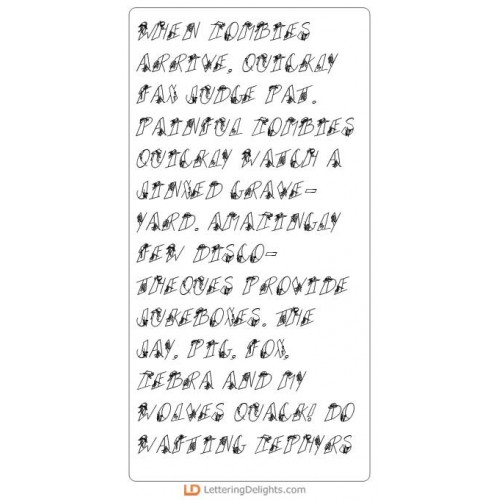 WHEN ZOMBIES
ARRIVE, QUICKLY
FAX JUDGE PAT.
PAINFUL ZOMBIES
QUICKLY WATCH A
JINXED GRAVE-
YARD. AMAZINGLY
FEW DISCO-
THEQUES PROVIDE
JUKEBOXES. THE
JAY, PIG, FOX,
ZEBRA AND MY
WOLVES QUACK! DO
WAFTING ZEPHYRS
LD LetteringDelights.com